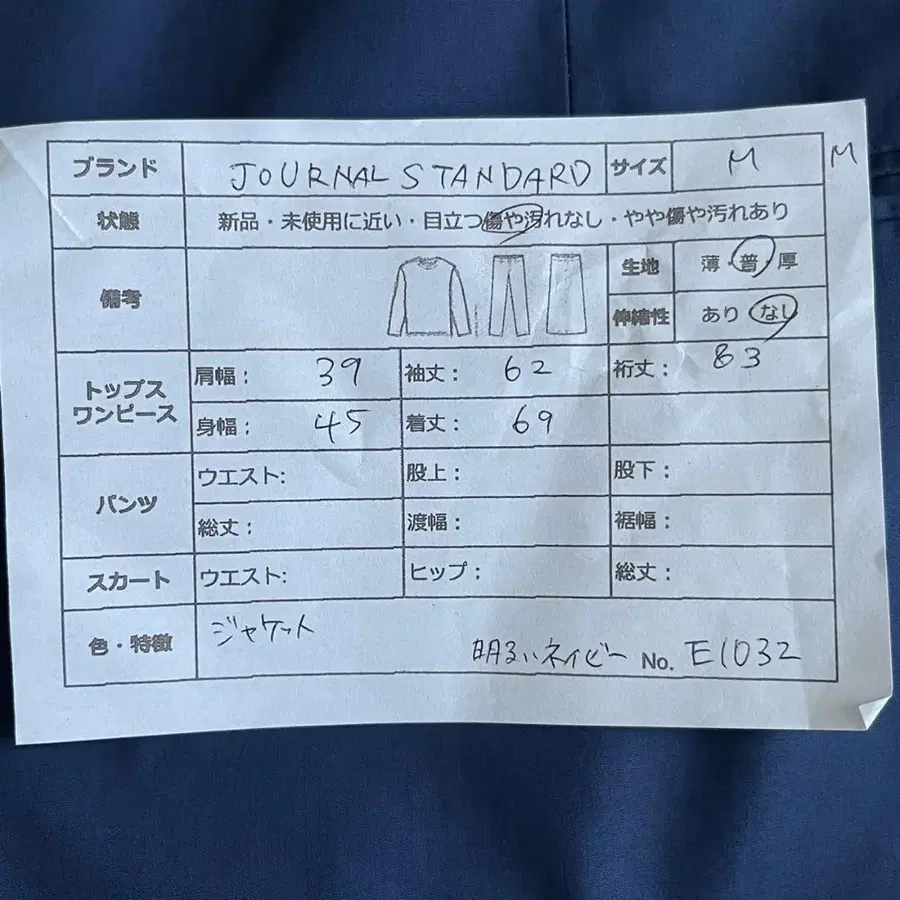 ブランド JOURNAL STANDARD サイズ M M
状態 新品・未使用に近い・目立つ傷や汚れなし・やや傷や汚れあり
備考 生地 薄・普・厚
伸縮性 あり なし
トップス ワンピース 肩幅： 39 袖丈： 62 裄丈： 83
身幅： 45 着丈： 69
パンツ ウエスト: 股上： 股下：
総丈： 渡幅： 裾幅：
スカート ウエスト: ヒップ： 総丈：
色・特徴 ジャケット
明るいネイビー No. E1032